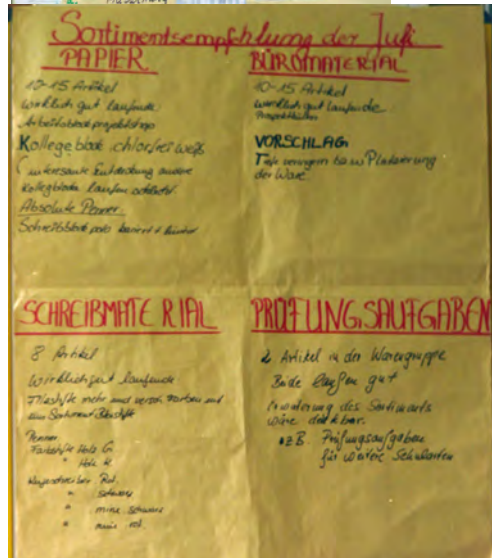 Sortimentsempfehlung der Jufi
PAPIER
10-15 Artikel
wirklich gut laufende
Arbeitsblock projektshop
Kollegeblock chlorfrei weiß
(interessante Entdeckung andere
Kollegblöcke laufen schlecht)
Absolute Penner:
Schreibblock kariert + liniert
BÜROMATERIAL
10-15 Artikel
wirklich gut laufende
Prospekthüllen
VORSCHLAG
Tiefe verringern bzw Platzierung
der Ware
SCHREIBMATERIAL
8 Artikel
Wirklich gut laufende
Filzstifte mehr und versch. Farben und
ein Sortiment Bleistift
Penner
Farbstifte Holz G.
" Holz K
Kugelschreiber Rot.
" schwarz
" mine schwarz
" mine rot.
PRÜFUNGSAUFGABEN
2 Artikel in der Warengruppe
Beide laufen gut
Erweiterung des Sortiments
wäre denkbar.
z.B. Prüfungsaufgaben
für weitere Schularten